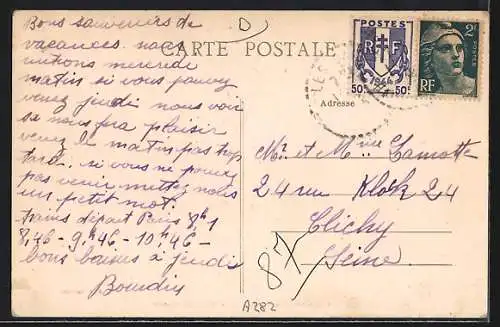 Bons souvenirs de
vacances. nous
rentrons mercredi
matin si vous pouvez
venez jeudi nous voir
sa nous fera plaisir
venez le matin pas trop
tard. si vous ne pouvez
pas venir mettez nous
un petit mot.
trains départ Paris 8h1
8,46 - 9h46 - 10h46 -
bons baisers à jeudi
Bourdin
D
CARTE POSTALE
Adresse
POSTES
RF
50c 50c
2F
RF
Mr. et Mme Lamotte
24 rue Klok 24
Clichy
Seine.
87
A282